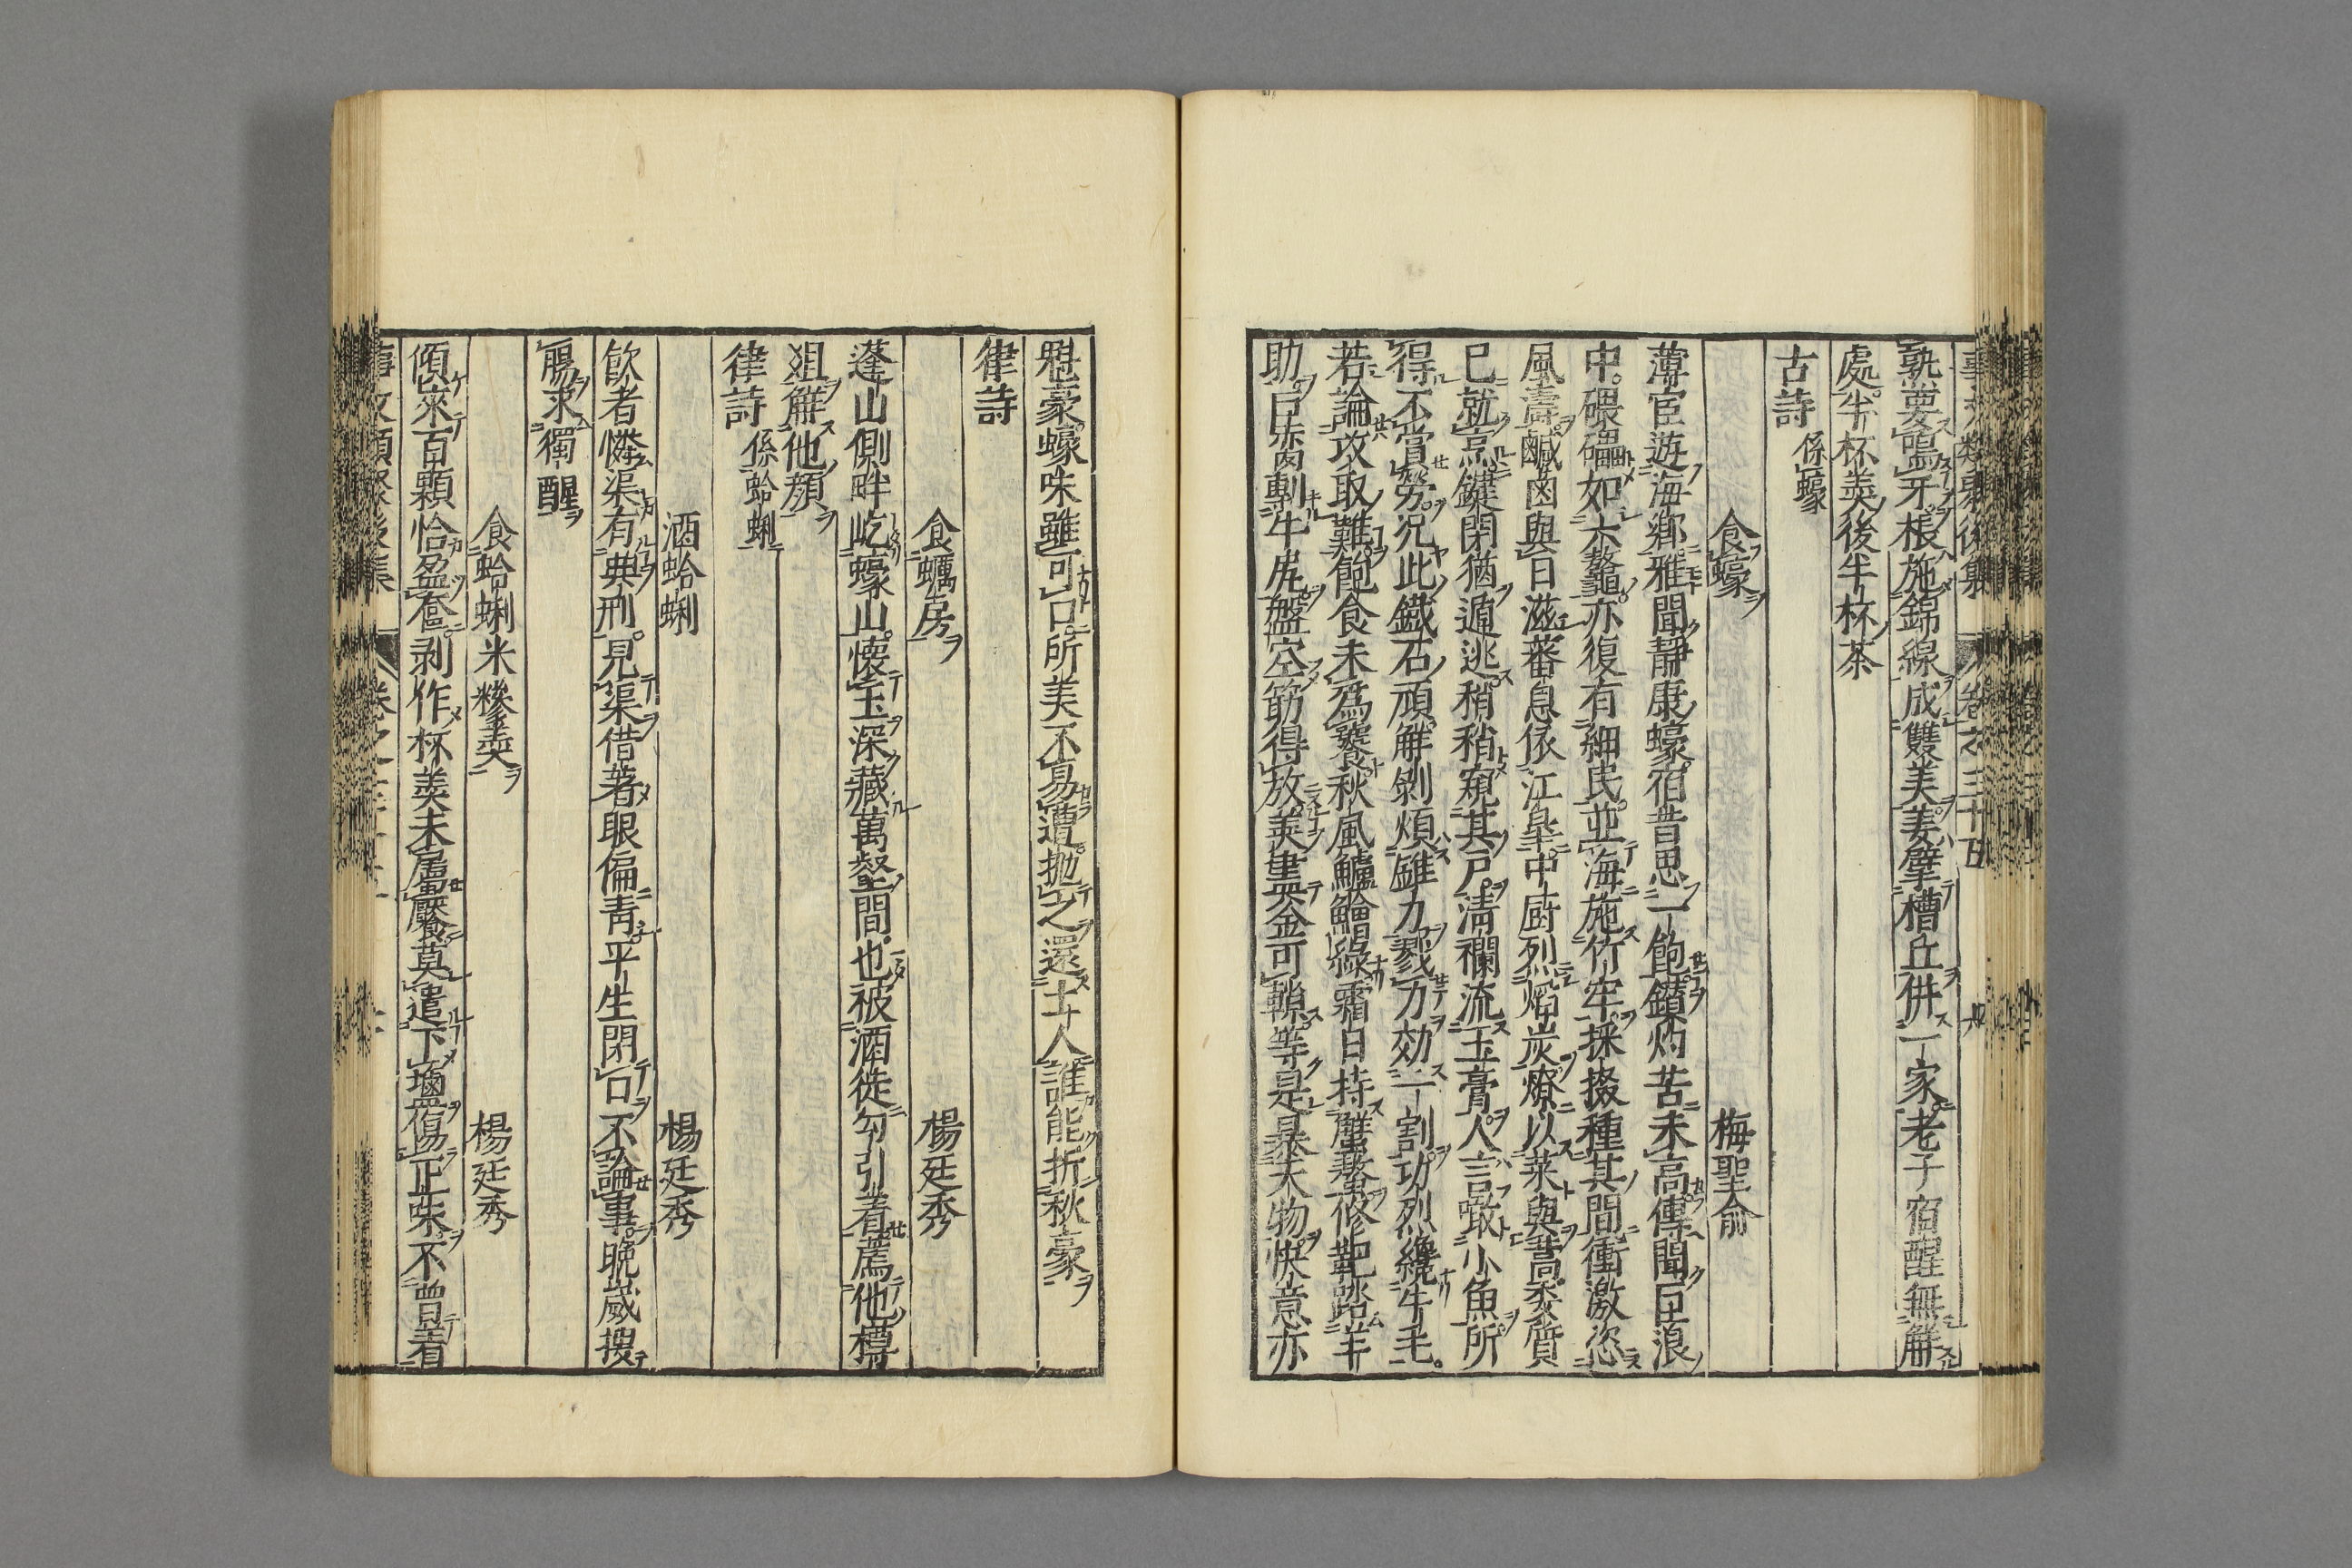 事文類聚後集 卷之三十五
熟要鳴牙棖施錦線成雙美姜擘槽丘供一家老子宿醒無觧
處半杯羮後半杯茶
古詩 係蠔
食蠔 梅聖俞
薄宦遊海郷雅聞靜康蠔宿昔思一飽鑚灼苦未高傳聞巨浪
中碨礧如六鼇亦復有細民並海施竹牢採掇種其間衝激恣
風濤鹹鹵與日滋蕃息依江皐中厨烈焰炭燎以萊與蒿委質
已就烹鍵閉猶遁逃稍稍窺其戸清襴流玉膏人言噉小魚所
得不賞勞况此鐵石頑觧剝煩錐刀戮力効一割功烈纔牛毛
若論攻取難飽食未爲饕秋風鱸鱠緑霜日持蟹螯修靶踏羊
肋巨臠剸牛尻盤空筯得放羮盡釜可轑等是暴天物快意亦
魁豪蠔味雖可口所美不易遭抛之還土人誰能折秋豪
律詩
食蠣房 楊廷秀
蓬山側畔屹蠔山懷玉深藏萬壑間也被酒徒勾引着薦他樽
俎觧他顔
律詩 係蛤蜊
酒蛤蜊 楊廷秀
飲者憐渠有典刑見渠借著眼偏青平生閉口不論事晩歲捜
腸求獨醒
食蛤蜊米糝羮 楊廷秀
傾來百顆恰盈奩剥作杯羮未屬饜莫遣下鹽傷正味不曽着